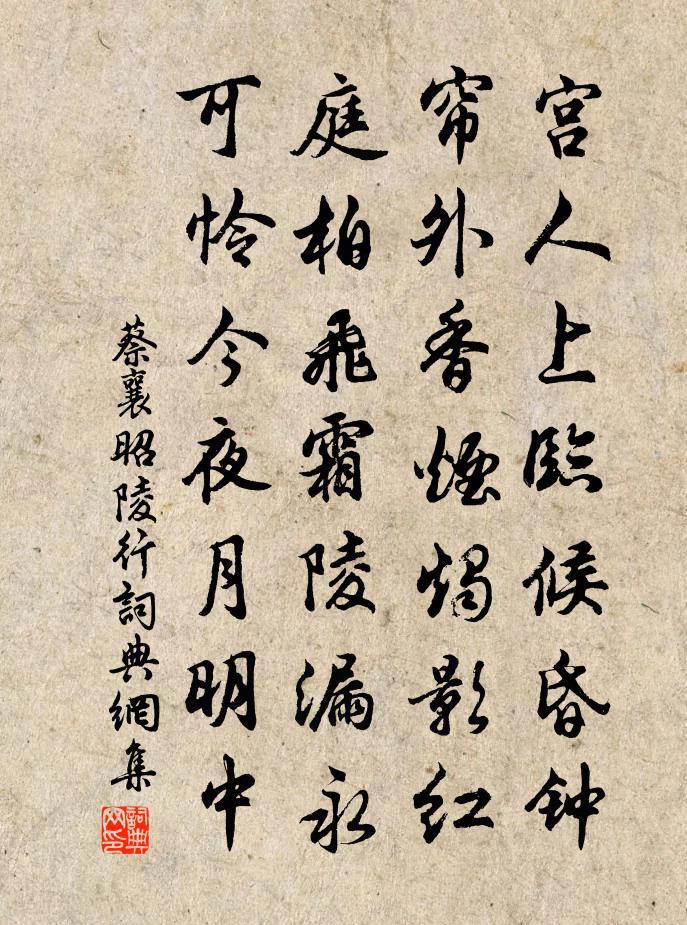 宫人上临候昏钟
帘外香烟烛影红
庭柏飛霜陵漏永
可怜今夜月明中
蔡襄昭陵行詞典網集
詞典网印